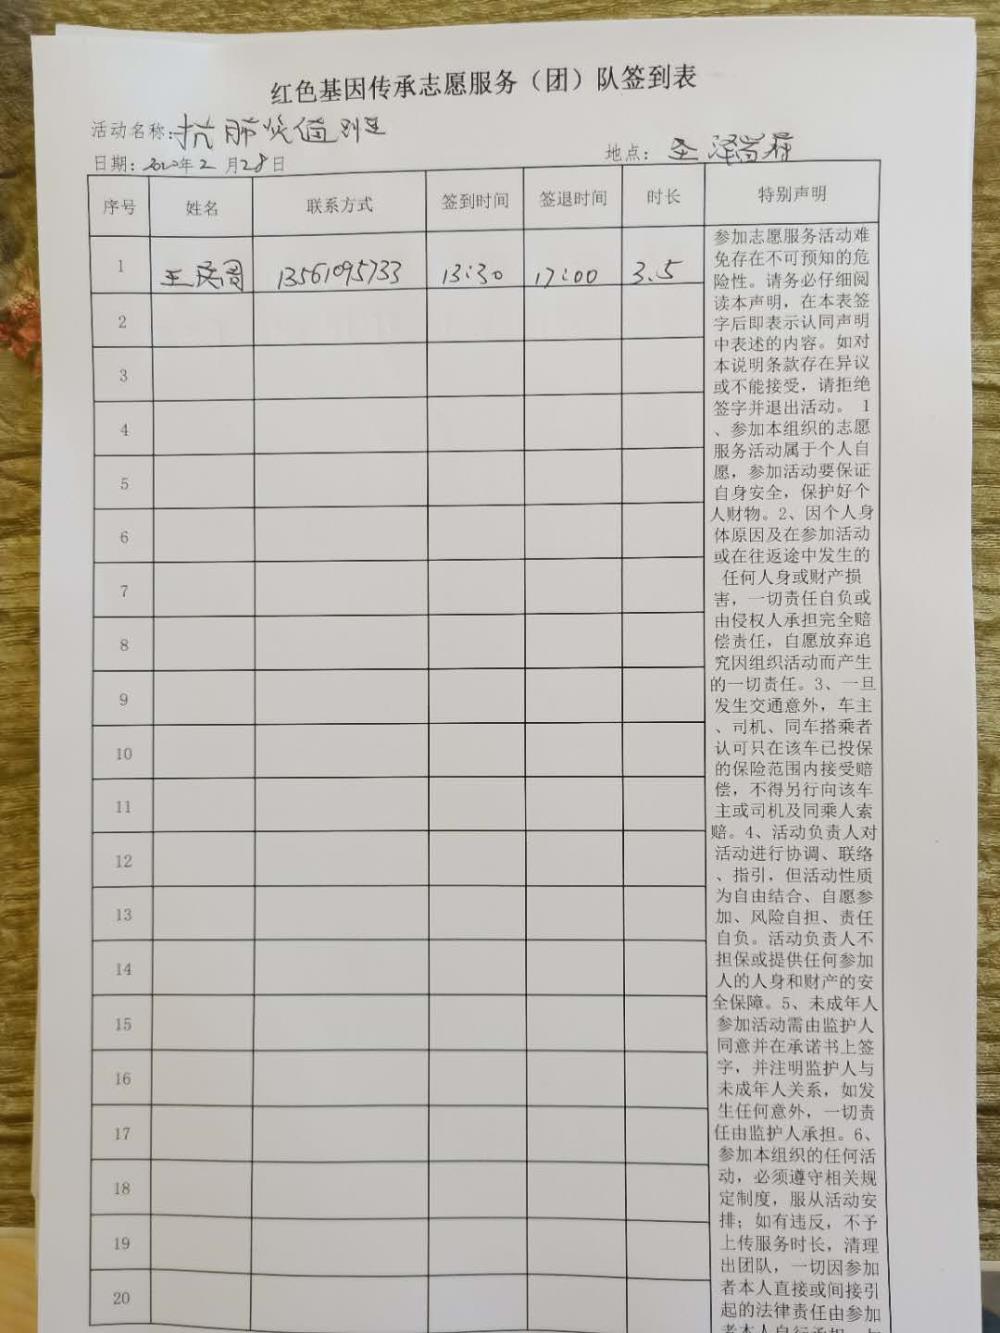 红色基因传承志愿服务（团）队签到表
活动名称：抗肺炎值班
日期：2020年2月28日
地点：圣泽
序号 姓名 联系方式 签到时间 签退时间 时长 特别声明
1 王 13561095733 13:30 17:00 3.5
2
3
4
5
6
7
8
9
10
11
12
13
14
15
16
17
18
19
20
参加志愿服务活动难
免存在不可预知的危
险性。请务必仔细阅
读本声明，在本表签
字后即表示认同声明
中表述的内容。如对
本说明条款存在异议
或不能接受，请拒绝
签字并退出活动。 1
、参加本组织的志愿
服务活动属于个人自
愿，参加活动要保证
自身安全，保护好个
人财物。2、因个人身
体原因及在参加活动
或在往返途中发生的
任何人身或财产损
害，一切责任自负或
由侵权人承担完全赔
偿责任，自愿放弃追
究因组织活动而产生
的一切责任。3、一旦
发生交通意外，车主
、司机、同车搭乘者
认可只在该车已投保
的保险范围内接受赔
偿，不得另行向该车
主或司机及同乘人索
赔。4、活动负责人对
活动进行协调、联络
、指引，但活动性质
为自由结合、自愿参
加、风险自担、责任
自负。活动负责人不
担保或提供任何参加
人的人身和财产的安
全保障。5、未成年人
参加活动需由监护人
同意并在承诺书上签
字，并注明监护人与
未成年人关系，如发
生任何意外，一切责
任由监护人承担。6、
参加本组织的任何活
动，必须遵守相关规
定制度，服从活动安
排；如有违反，不予
上传服务时长，清理
出团队，一切因参加
者本人直接或间接引
起的法律责任由参加
者本人自行承担